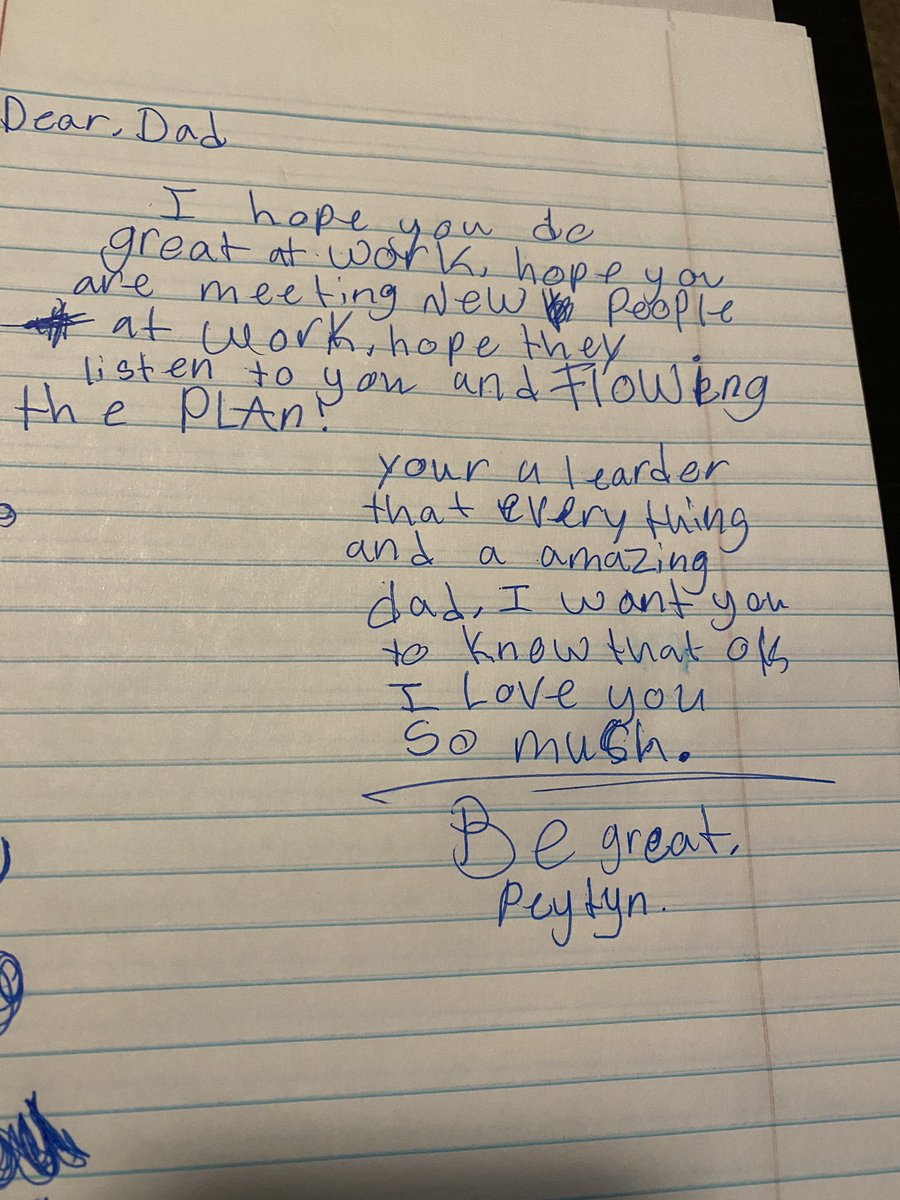 Dear, Dad
I hope you do
great at work, hope you
are meeting New People
at work, hope they
listen to you and Flowing
the PLAn!
your a learder
that every thing
and a amazing
dad, I want you
to know that ok
I Love you
so mush.
Be great,
Peytyn.